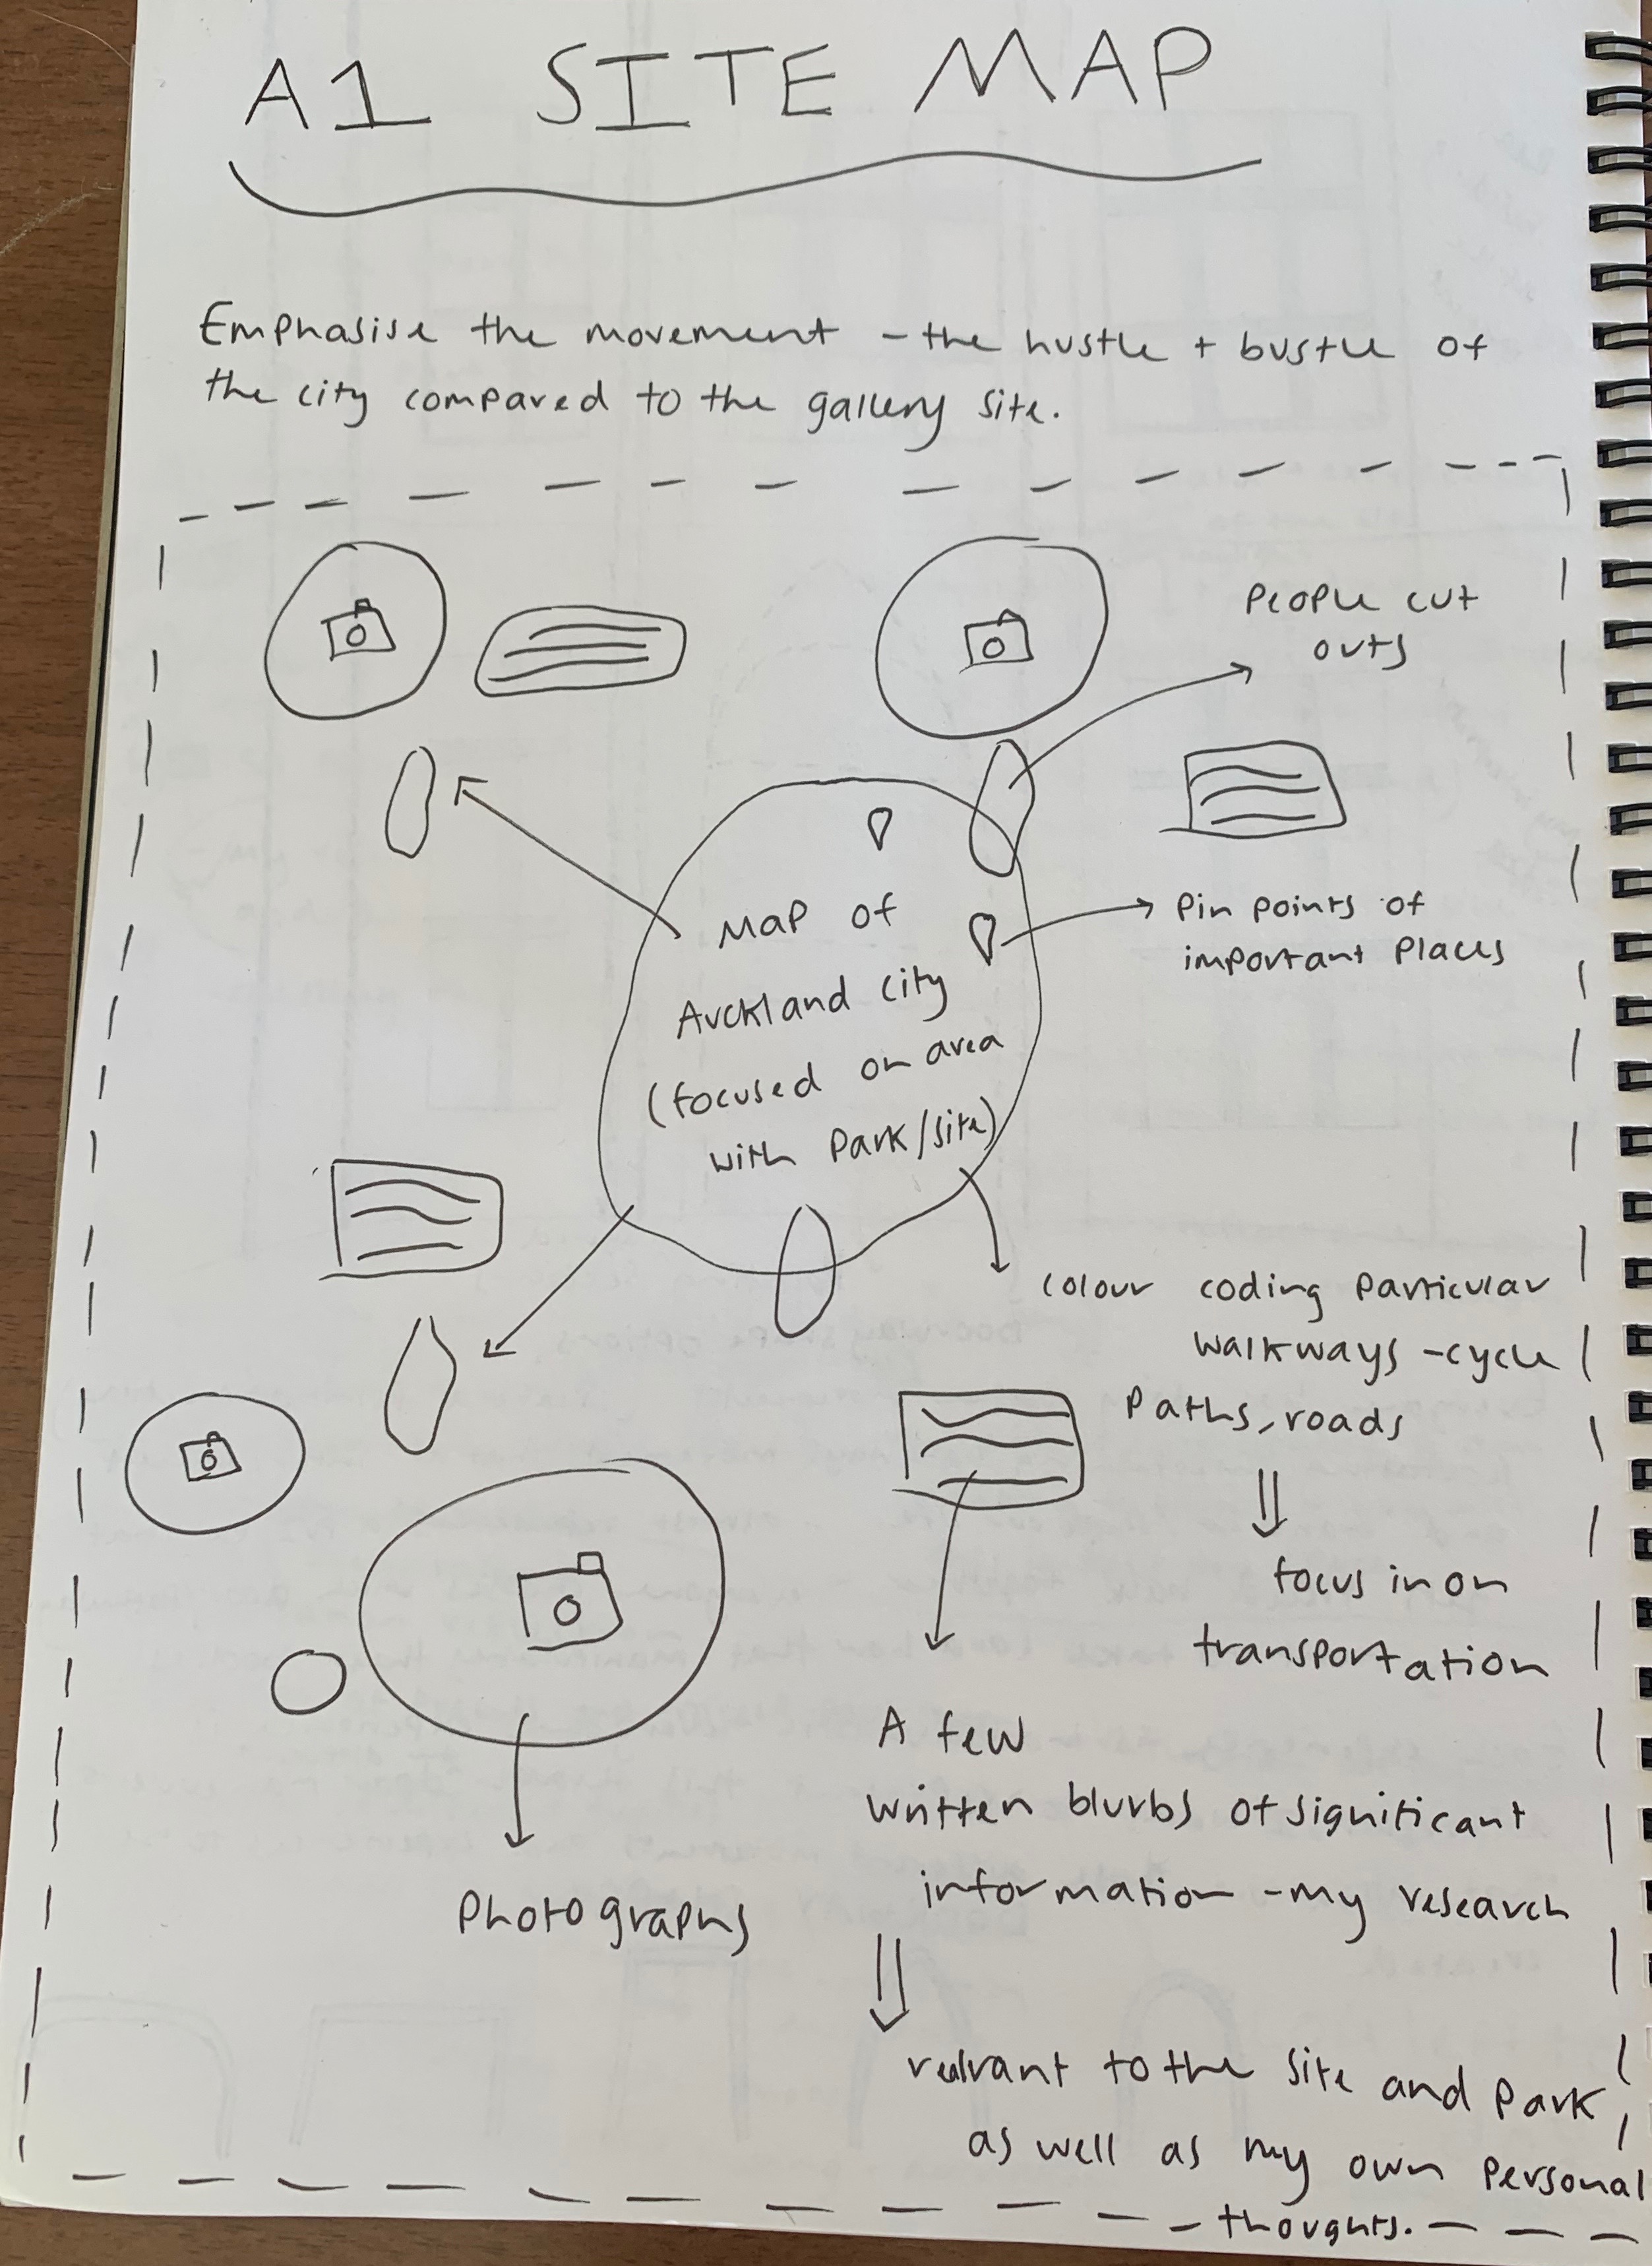 A1 SITE MAP
Emphasise the movement - the hustle + bustle of
the city compared to the gallery site.
People cut
outs
Map of
Auckland city
(focused on area
with Park/site)
Pin points of
important places
colour coding particular
walkways - cycle
paths, roads
focus in on
transportation
A few
written blurbs of significant
information - my research
Photographs
relvant to the site and park,
as well as my own personal
thoughts.